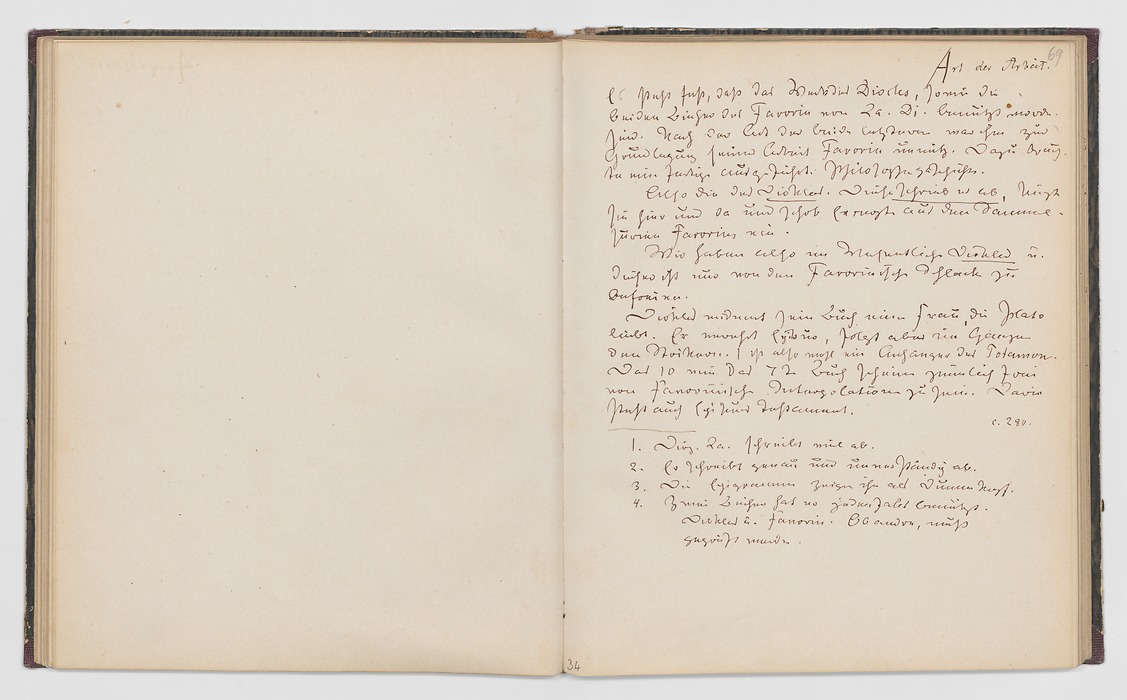 69
Art der Arbeit.
Es steht fest, daß das Werk des Diocles, sowie die
beiden Bücher des Favorin von La. Di. benützt worden
sind. Nach der Art der beiden letzteren war ihm zur
Grundlegung seiner Arbeit Favorin unnütz. Dazu brauch-
te eine fertige ausgeführte Philosophengeschichte.
Also die des Diokles. Diese schrieb er ab, kürzt
sie hier und da und schob Excerpte aus den Sammel-
surien Favorins ein.
Wir haben also im Wesentlichen Diokles u.
dieser ist nur von den Favorinischen Schlacken zu
befreien.
Diokles widmet sein Buch einer Frau, die Plato
liebt. Er verehrt Epikur, folgt aber im Ganzen
den Stoikern. Ist also wohl ein Anhänger des Potamon.
Das 10 und das 7te Buch scheinen ziemlich frei
von Favorinischen Interpolationen zu sein. Darin
steht auch Epikurs Testament.
c. 280.
1. Diog. La. schreibt viel ab.
2. Er schreibt genau und unverständig ab.
3. Die Epigramme zeigen ihn als Dummkopf.
4. Zwei Bücher hat er jedenfalls benützt.
Diokles u. Favorin. Ob andre, muß
geprüft werden.
34